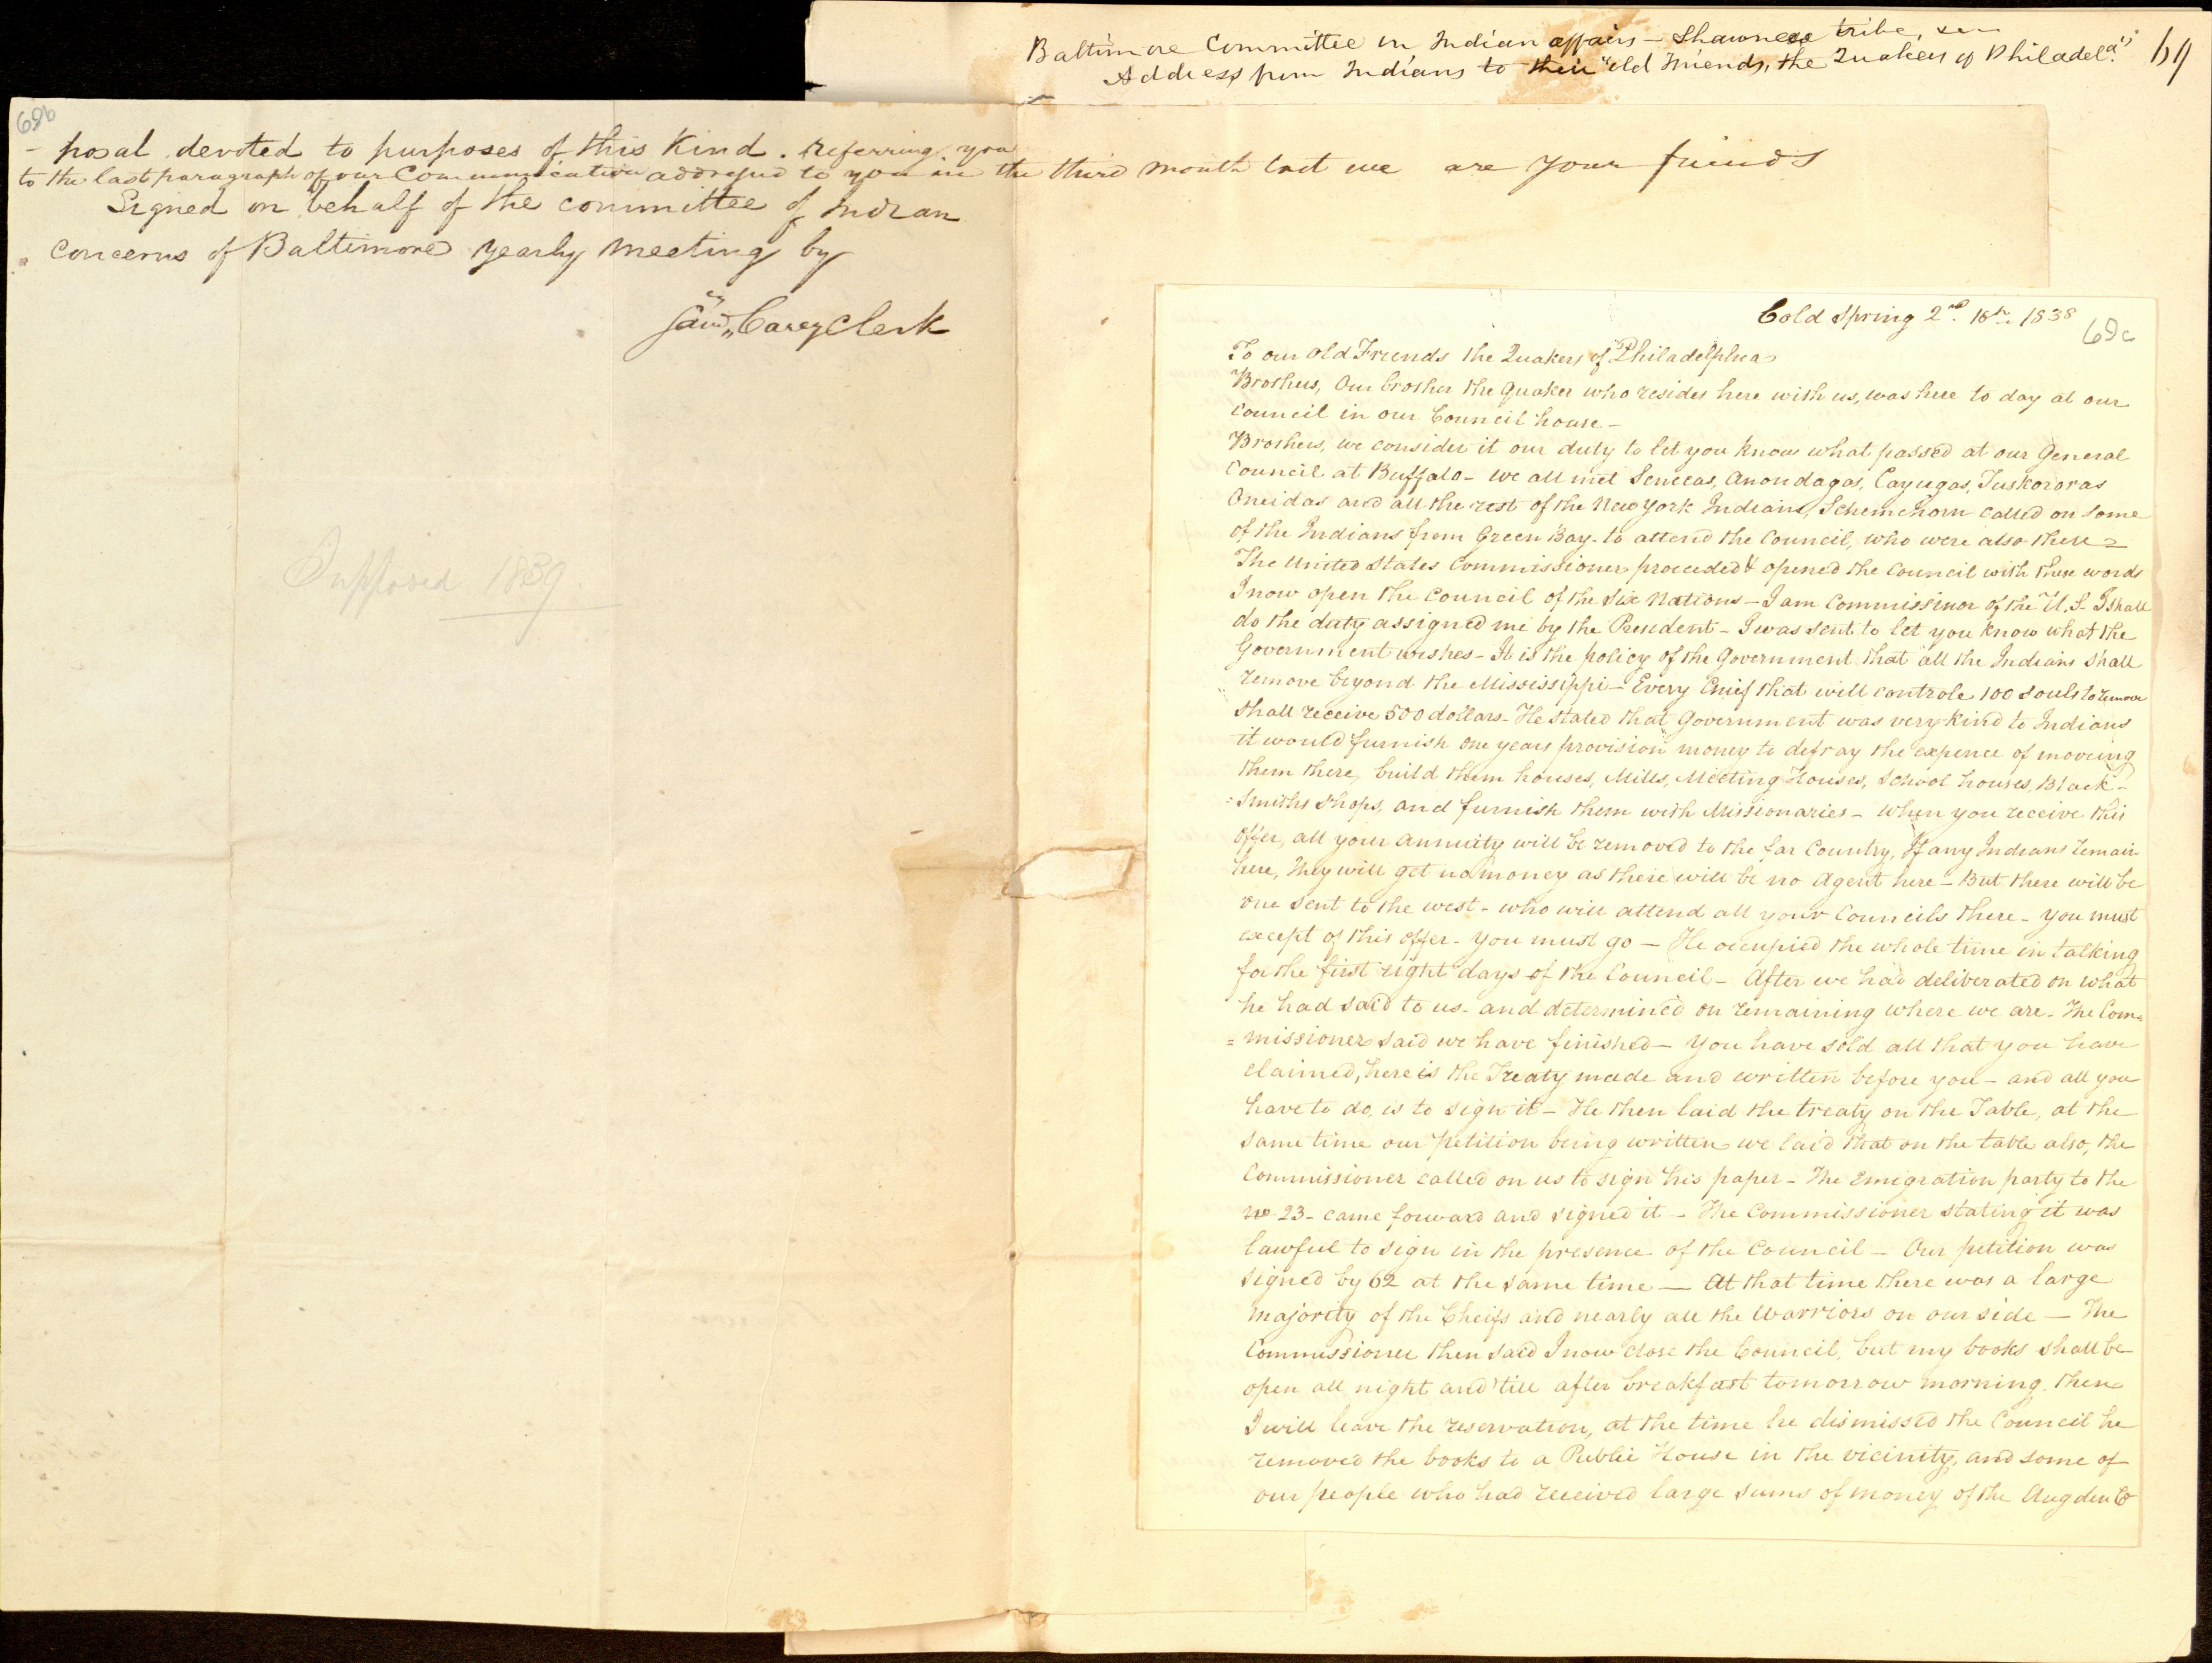 Baltimore Committee on Indian affairs - Shawnese tribe,
Address from Indians to their "old Friends, the Quakers of Philadela."
69
69b
- posal devoted to purposes of this Kind. Referring you
to the last paragraph of our Communication addressed to you in the third month last we are your friends
Signed on behalf of the committee of Indian
concerns of Baltimore yearly meeting by
Saml. Carey Clerk
Supposed 1839.
Cold Spring 2nd. 18th. 1838
69c
To our old Friends the Quakers of Philadelphia
Brothers, Our brother the Quaker who resides here with us, was here to day at our
Council in our Council house -
Brothers, we consider it our duty to let you know what passed at our General
Council at Buffalo - we all met Senecas, Anondagas, Cayugas, Tuskororas
Oneidas and all the rest of the New York Indians, Schemehorn called on some
of the Indians from Green Bay - to attend the Council, who were also there =
The United States Commissioner proceeded & opened the Council with these words
I now open the Council of the Six Nations - I am Commissinor of the U.S. I shall
do the duty assigned me by the President - I was sent to let you know what the
Government wishes - It is the policy of the Government that all the Indians shall
remove beyond the Mississippi - Every Chief that will controle 100 souls to remove
shall receive 500 dollars - He stated that Government was very kind to Indians
it would furnish one years provision money to defray the expence of moveing
them there, build them houses, Mills, Meeting Houses, School houses, Black -
: Smiths shops, and furnish them with Missionaries - When you receive this
offer, all your annuity will be removed to the far Country, If any Indians remain
here, they will get no money as there will be no Agent here - But there will be
one sent to the west - who will attend all your Councils there - you must
except of this offer - you must go - He occupied the whole time in talking
for the first eight days of the Council - After we had deliverated on what
he had said to us - and determined on remaining where we are - The Com=
= missioner said we have finished - You have sold all that you have
claimed, here is the Treaty made and written before you - and all you
have to do, is to sign it - He then laid the treaty on the Table, at the
same time our petition being written we laid that on the table also, the
Commissioner called on us to sign his paper - The Emigration party to the
no 23 - came forward and signed it - The Commissioner stating it was
lawful to sign in the presence of the Council - Our petition was
signed by 62 at the same time - At that time there was a large
majority of the Cheifs and nearly all the Warriors on our side - The
Commissioner then said I now close the Council, but my books shall be
open all night and till after breakfast tomorrow morning, then
I will leave the reservation, at the time he dismissed the Council he
removed the books to a Public House in the vicinity, and some of
our people who had received large sums of money of the Augden Co